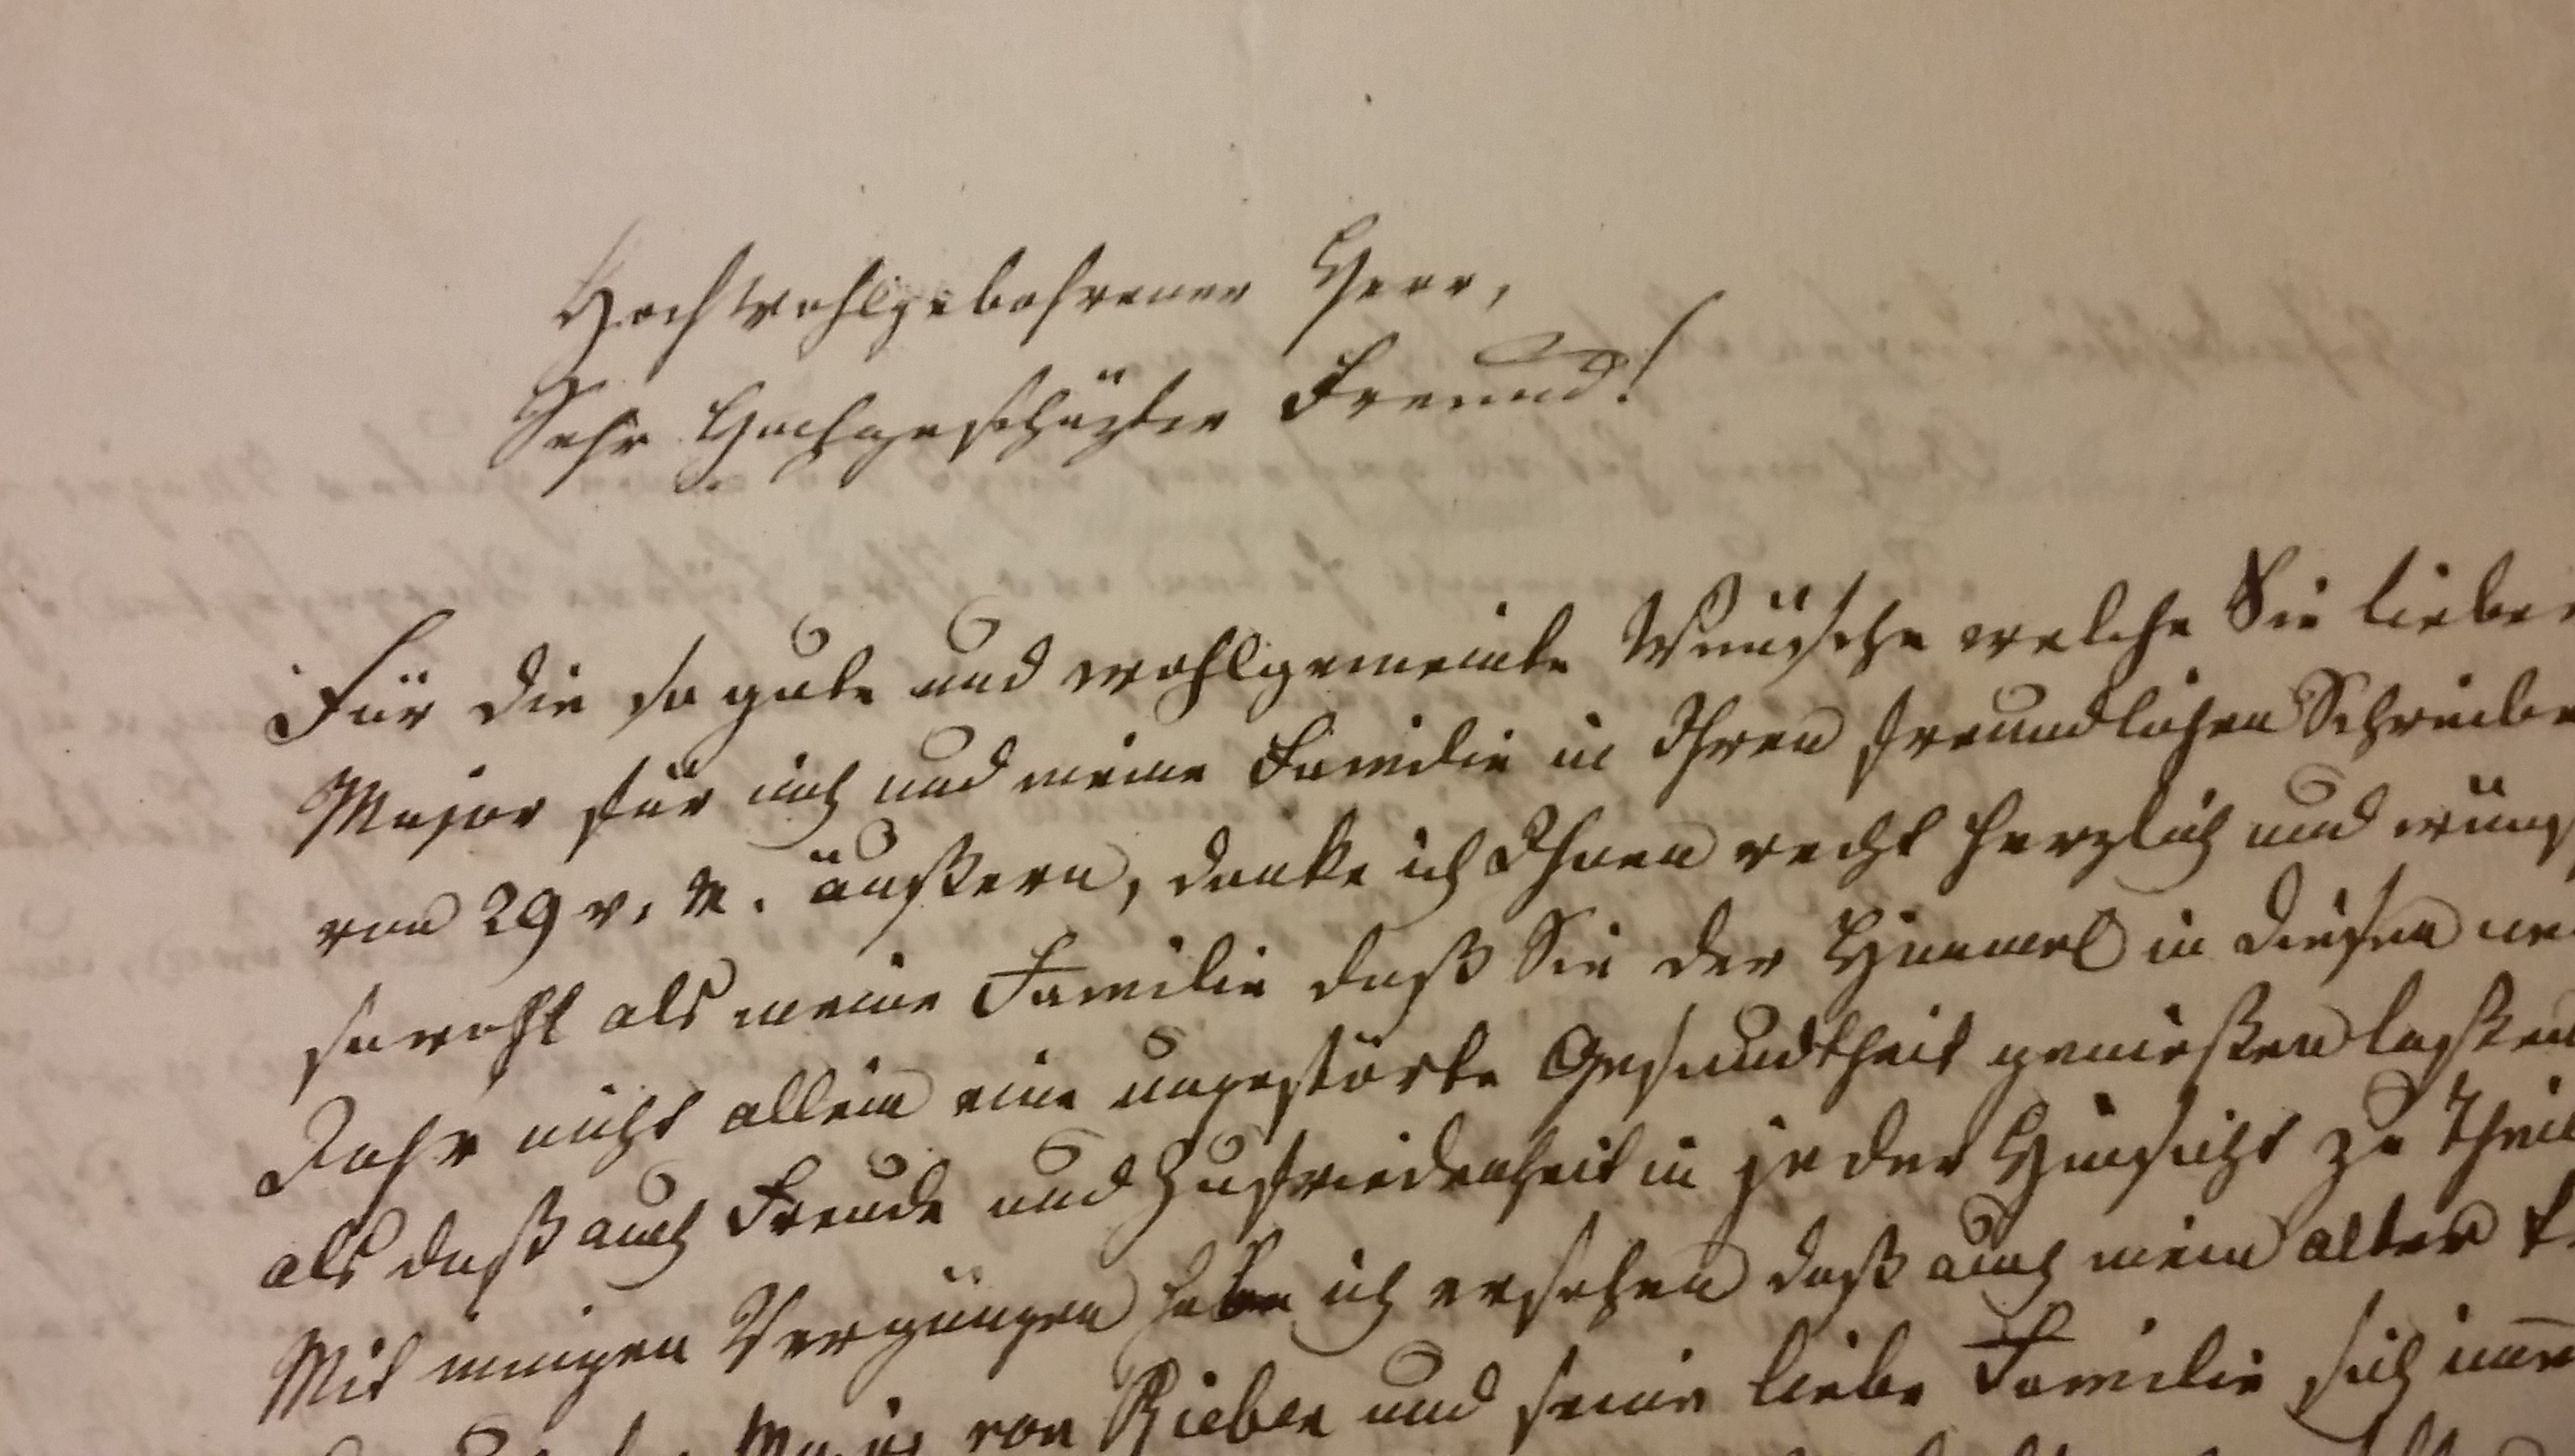 Hochwohlgebohrener Herr,
Sehr Hochgeschäzter Freund!
Für die so gute und wohlgemeinte Wünsche welche Sie lieber
Major für mich und meine Familie in Ihren freundlichen Schreibe
von 29 v. M. äußern, danke ich Ihnen recht herzlich und wünsch
sowohl als meine Familie daß Sie der Himmel in diesen ne
Jahr nicht allein eine ungestörte Gesundtheit genießen laßen
als daß auch Freude und Zufriedenheit in jeder Hinsicht zu Theil
Mit innigen Vergnügen habe ich ersehen daß auch mein alter
Major von und seine liebe Familie sich